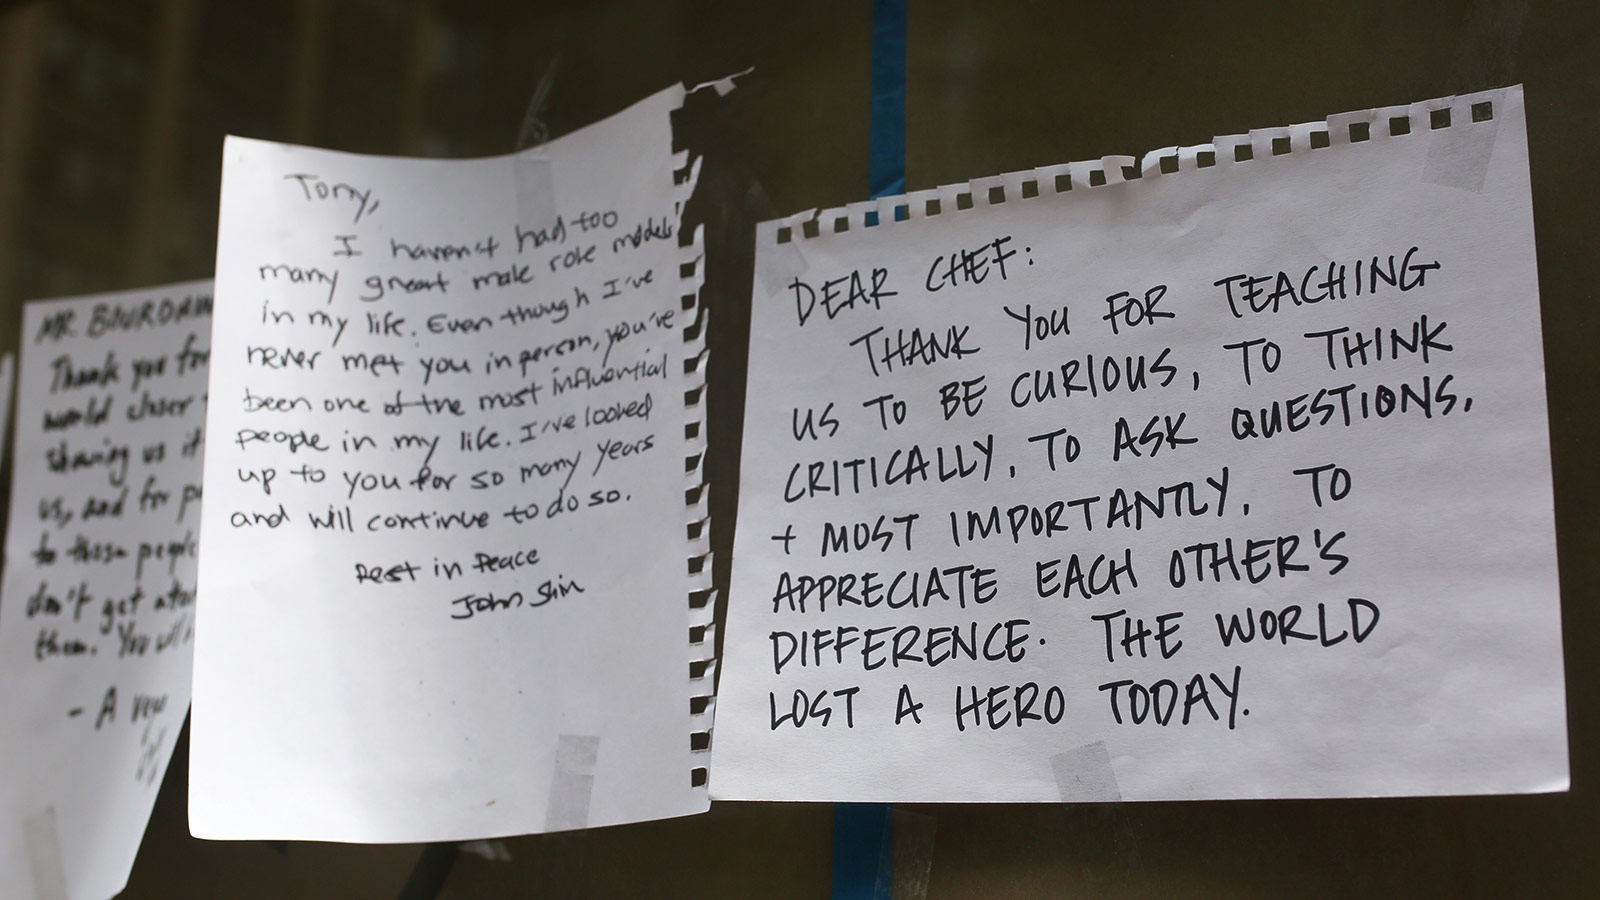 MR. BOURDAIN
Thank you for
world closer
sharing us
us, and for
to those people
don't get
them. You
- A
Tony,
I haven't had too
many great male role models
in my life. Even though I've
never met you in person, you've
been one of the most influential
people in my life. I've looked
up to you for so many years
and will continue to do so.
Rest in Peace
John Shin
DEAR CHEF:
THANK YOU FOR TEACHING
US TO BE CURIOUS, TO THINK
CRITICALLY, TO ASK QUESTIONS,
+ MOST IMPORTANTLY, TO
APPRECIATE EACH OTHER'S
DIFFERENCE. THE WORLD
LOST A HERO TODAY.